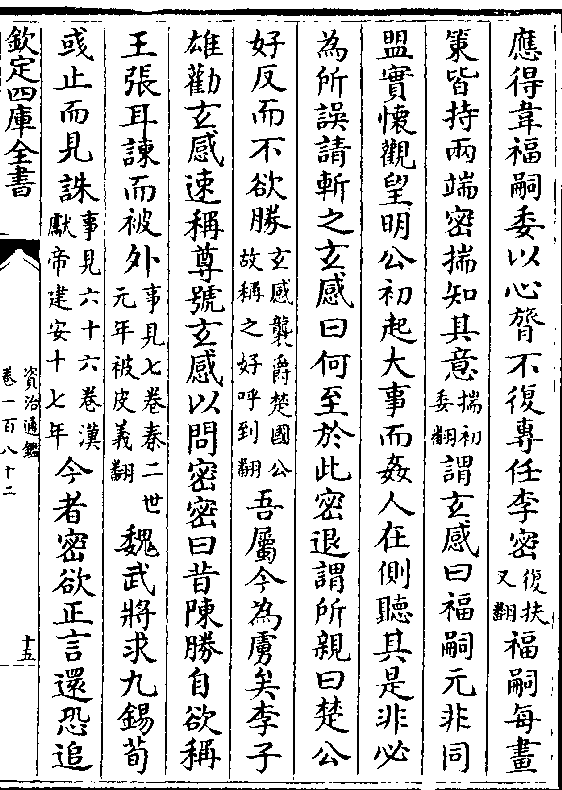 應得韋福嗣委以心膂不復專任李密復扶又翻福嗣每畫
策皆持兩端密揣知其意揣初委翻謂玄感曰福嗣元非同
盟實懷觀望明公初起大事而姦人在側聽其是非必
為所誤請斬之玄感曰何至於此密退謂所親曰楚公
好反而不欲勝玄感襲爵楚國公故稱之好呼到翻吾屬今為虜矣李子
雄勸玄感速稱尊號玄感以問密密曰昔陳勝自欲稱
王張耳諫而被外事見七卷秦二世元年被皮義翻魏武將求九錫荀
彧止而見誅事見六十六卷漢獻帝建安十七年今者密欲正言還恐追
欽定四庫全書
資治通鑑
卷一百八十二
十五